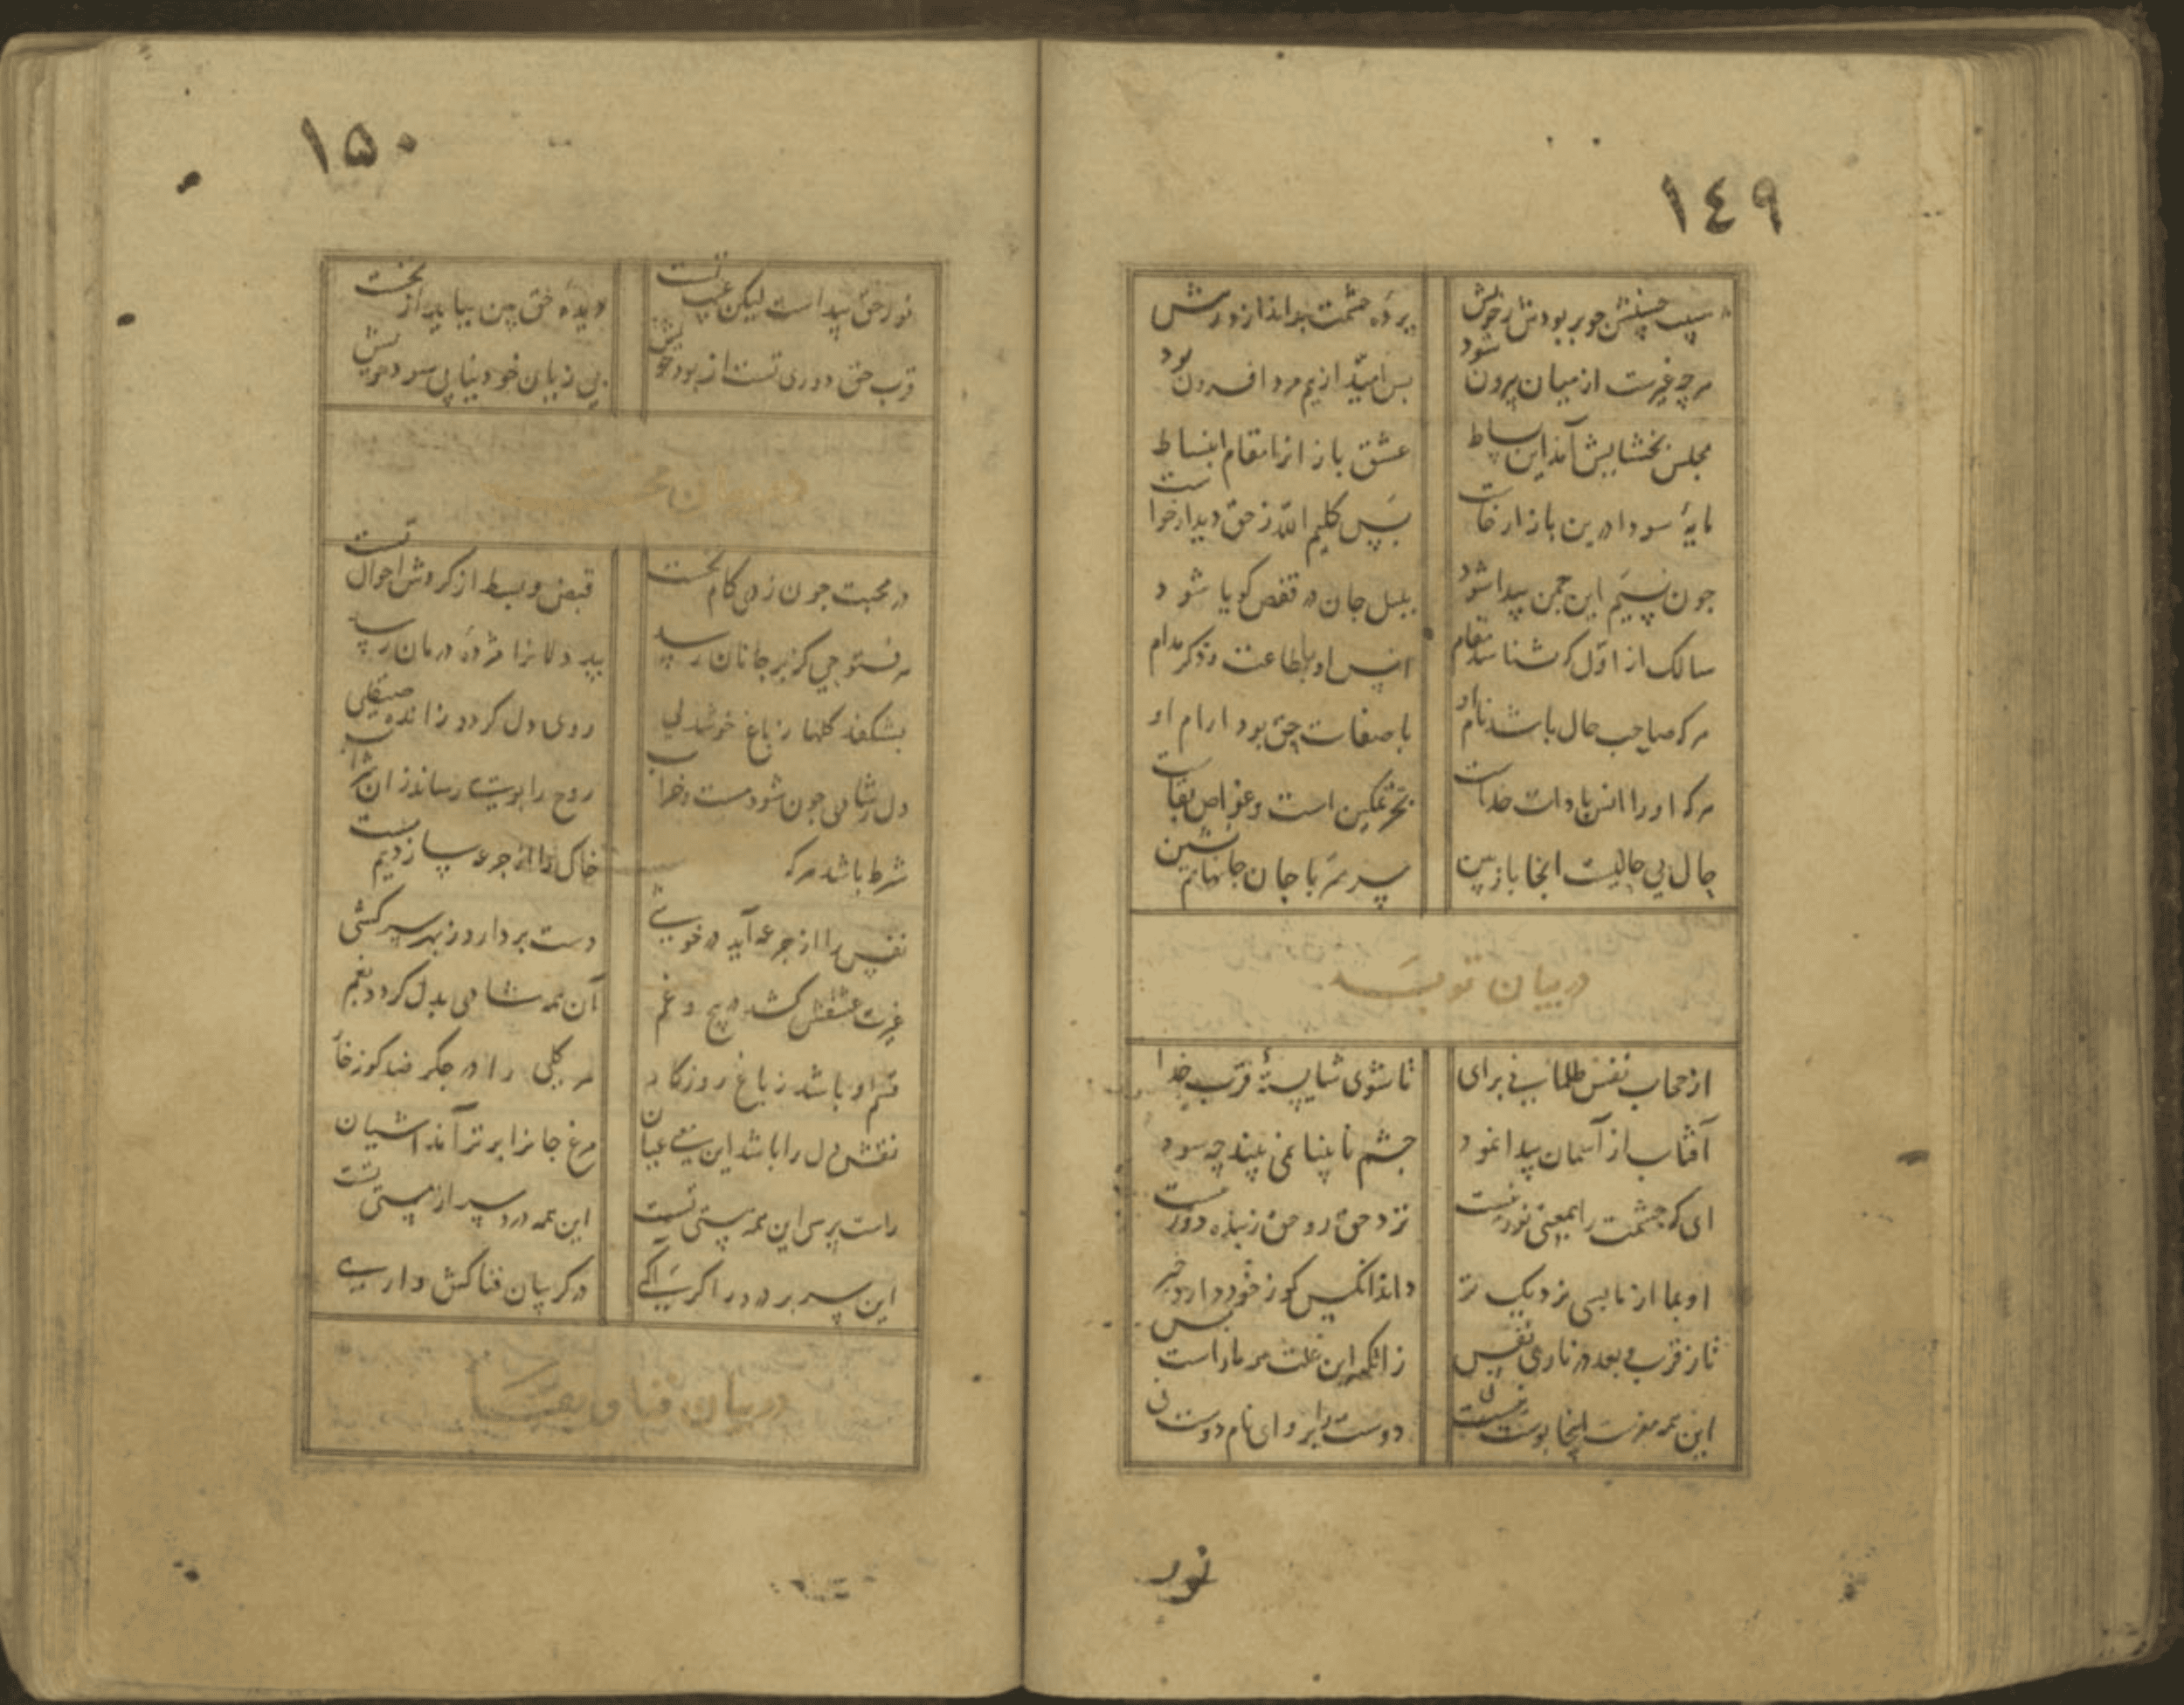 ١٤٩
پرده حشمت براندازد رسش
هرچه غیرست از میان بیرون شود
بس امید از بیم مرد افزون بود
مجلس بخشایش آمد این بساط
عشق باز از نامقام انبساط
مایهٔ سودا درین بازار خاست
پس کلیم الله ز حق دیدار خواست
جون نسیم این جمن پیدا شود
بلبل جان در قفص کویا شود
سالک از اول که شناسد مقام
انس او با طاعت و ذکر مدام
هرکه صاحب حال باشد نام او
با صفات حق بود ارام او
هرکه او را انس با ذات خداست
بحر تمکین است و غواص بقاست
حال بی حالیست اینجا باز بین
سر بسر با جان جانها همنشین
در بیان قرب
از حجاب نفس ظلمانی برای
تا شوی شایستهٔ قرب خدا
آفتاب از آسمان پیدا نمود
جشم نابینا نمی بیند چه سود
ای که جشمت را بمعنی نور نیست
نزد حق رو حق ز بنده دور نیست
او بما از ما بسی نزدیک تر
داند انکس کو ز خود دارد خبر
تا ز قرب و بعد در نادی نفس
زانکه این علت مر ما راست بس
این همه مغزست اینجا پوست نیست
نور
١٥٠
نور حق پیداست لیکن
دیده حق بین بباید از نخست
قرب حق دوری تست از بود خویش
بی زیان خود نیابی سود خویش
در بیان محبت
در محبت جون زدی کام نخست
قبض و بسط از کردش احوال تست
هر فتوحی کز بر جانان رسد
بیدلانرا مژدهٔ درمان رسد
بشکفد کلها ز باغ خوشدلی
روی دل کردد ز انده صیقلی
دل ز شادی جون شود مست و خراب
روح را بویی رساند زان شراب
شرط باشد هرکه
خاک را از جرعه سازد
نفس را از جرعه آید در خوشی
دست بردارد ز بهر سرکشی
غیرت عشقش کشد در پیچ و غم
آن همه شادی بدل کردد بغم
قسم او باشد ز باغ روزکار
هر کلی را در جکر صد کوزه خار
نقش دل را باشد این بیت عیان
مرغ جانرا برتر آمد آشیان
راست پرسی این همه پستی تست
این همه درد سر از هستی تست
این سر بر درد را کر آکهی
در کریبان فنا کش
در بیان فنا و بقا